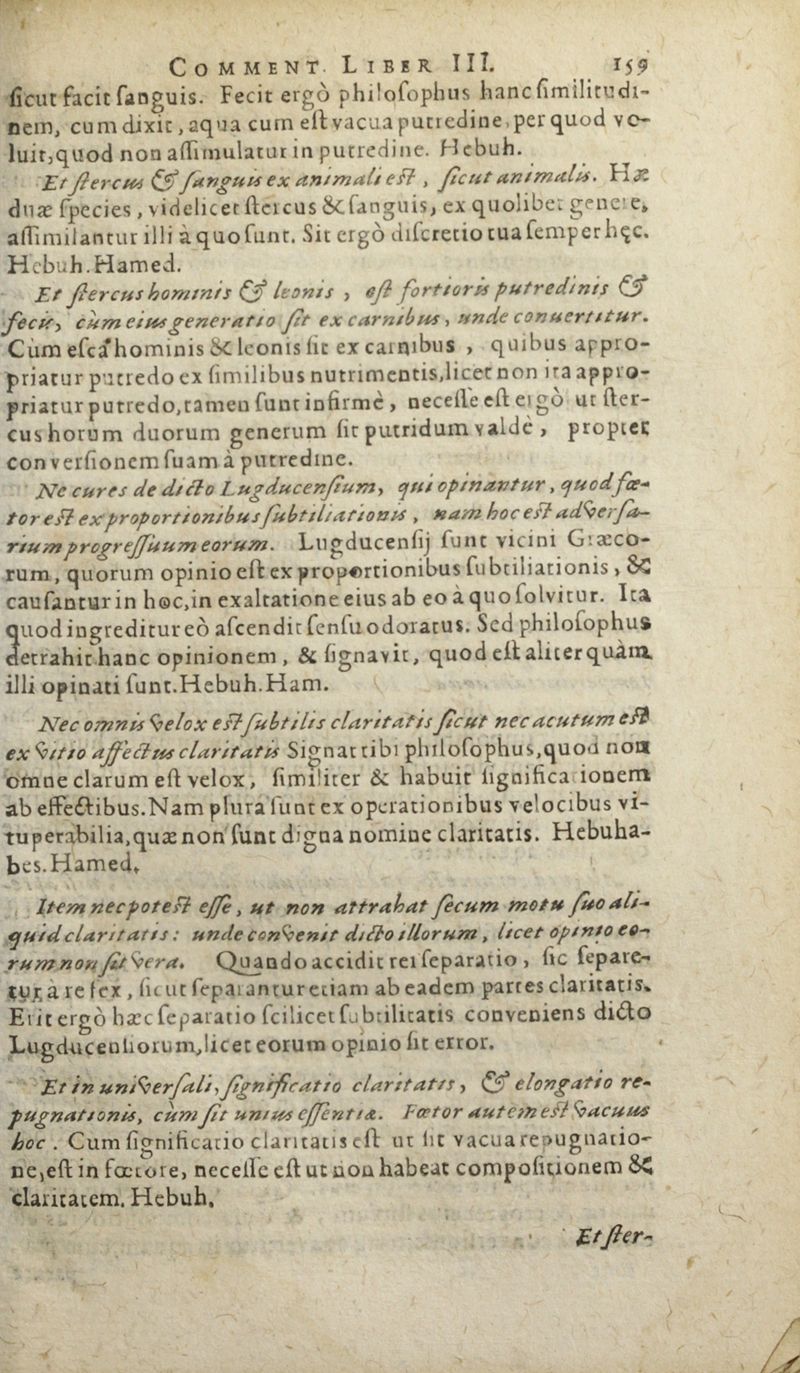 COMMENT. LIBER III. 159
ſicut facit ſanguis. Fecit ergò philoſophus hanc ſimilitudi-
nem, cum dixit, aqua cum eſt vacua putredine, per quod vo-
luit, quod non aſſimulatur in putredine. Hebuh.
Et ſtercus & ſanguis ex animali eſt, ſicut animalis. Hæ
duæ ſpecies, videlicet ſtercus & ſanguis, ex quolibet genere,
aſſimilantur illi à quo ſunt. Sit ergò diſcretio tua ſemper hęc.
Hebuh. Hamed.
Et ſtercus hominis & leonis, eſt fortioris putredinis &
fecis, cùm eius generatio ſit ex carnibus, unde conuertitur.
Cùm eſca hominis & leonis ſit ex carnibus, quibus appro-
priatur putredo ex ſimilibus nutrimentis, licet non ita appro-
priatur putredo, tamen ſunt infirmè, neceſſe eſt ergò ut ſter-
cus horum duorum generum ſit putridum valdè, propter
converſionem ſuam à putredine.
Ne cures de dicto Lugducenſium, qui opinantur, quod fœ-
tor eſt ex proportionibus ſubtiliationis, nam hoc eſt adverſa-
rium progreſſuum eorum. Lugducenſij ſunt vicini Græco-
rum, quorum opinio eſt ex proportionibus ſubtiliationis, &
cauſantur in hoc, in exaltatione eius ab eo à quo ſolvitur. Ita
quod ingreditur eò aſcendit ſenſu odoratus. Sed philoſophus
detrahit hanc opinionem, & ſignavit, quod eſt aliter quàm
illi opinati ſunt. Hebuh. Ham.
Nec omnis velox eſt ſubtilis claritatis ſicut nec acutum eſt
ex vitio affectus claritatis Signat tibi philoſophus, quod non
omne clarum eſt velox, ſimiliter & habuit ſignificationem
ab effectibus. Nam plura ſunt ex operationibus velocibus vi-
tuperabilia, quæ non ſunt digna nomine claritatis. Hebuha-
bes. Hamed.
Item nec poteſt eſſe, ut non attrahat ſecum motu ſuo ali-
quid claritatis: unde convenit dicto illorum, licet opinio eo-
rum non ſit vera. Quando accidit rei ſeparatio, ſic ſepare-
tur à re fex, ſicut ſeparantur etiam ab eadem partes claritatis.
Erit ergò hæc ſeparatio ſcilicet ſubtilitatis conveniens dicto
Lugducenſiorum, licet eorum opinio ſit error.
Et in univerſali, ſignificatio claritatis, & elongatio re-
pugnationis, cùm ſit unius eſſentiæ. Fœtor autem eſt vacuus
hoc. Cum ſignificatio claritatis eſt ut ſit vacua repugnatio-
ne, eſt in fœtore, neceſſe eſt ut non habeat compoſitionem &
claritatem. Hebuh.
Et ſter-